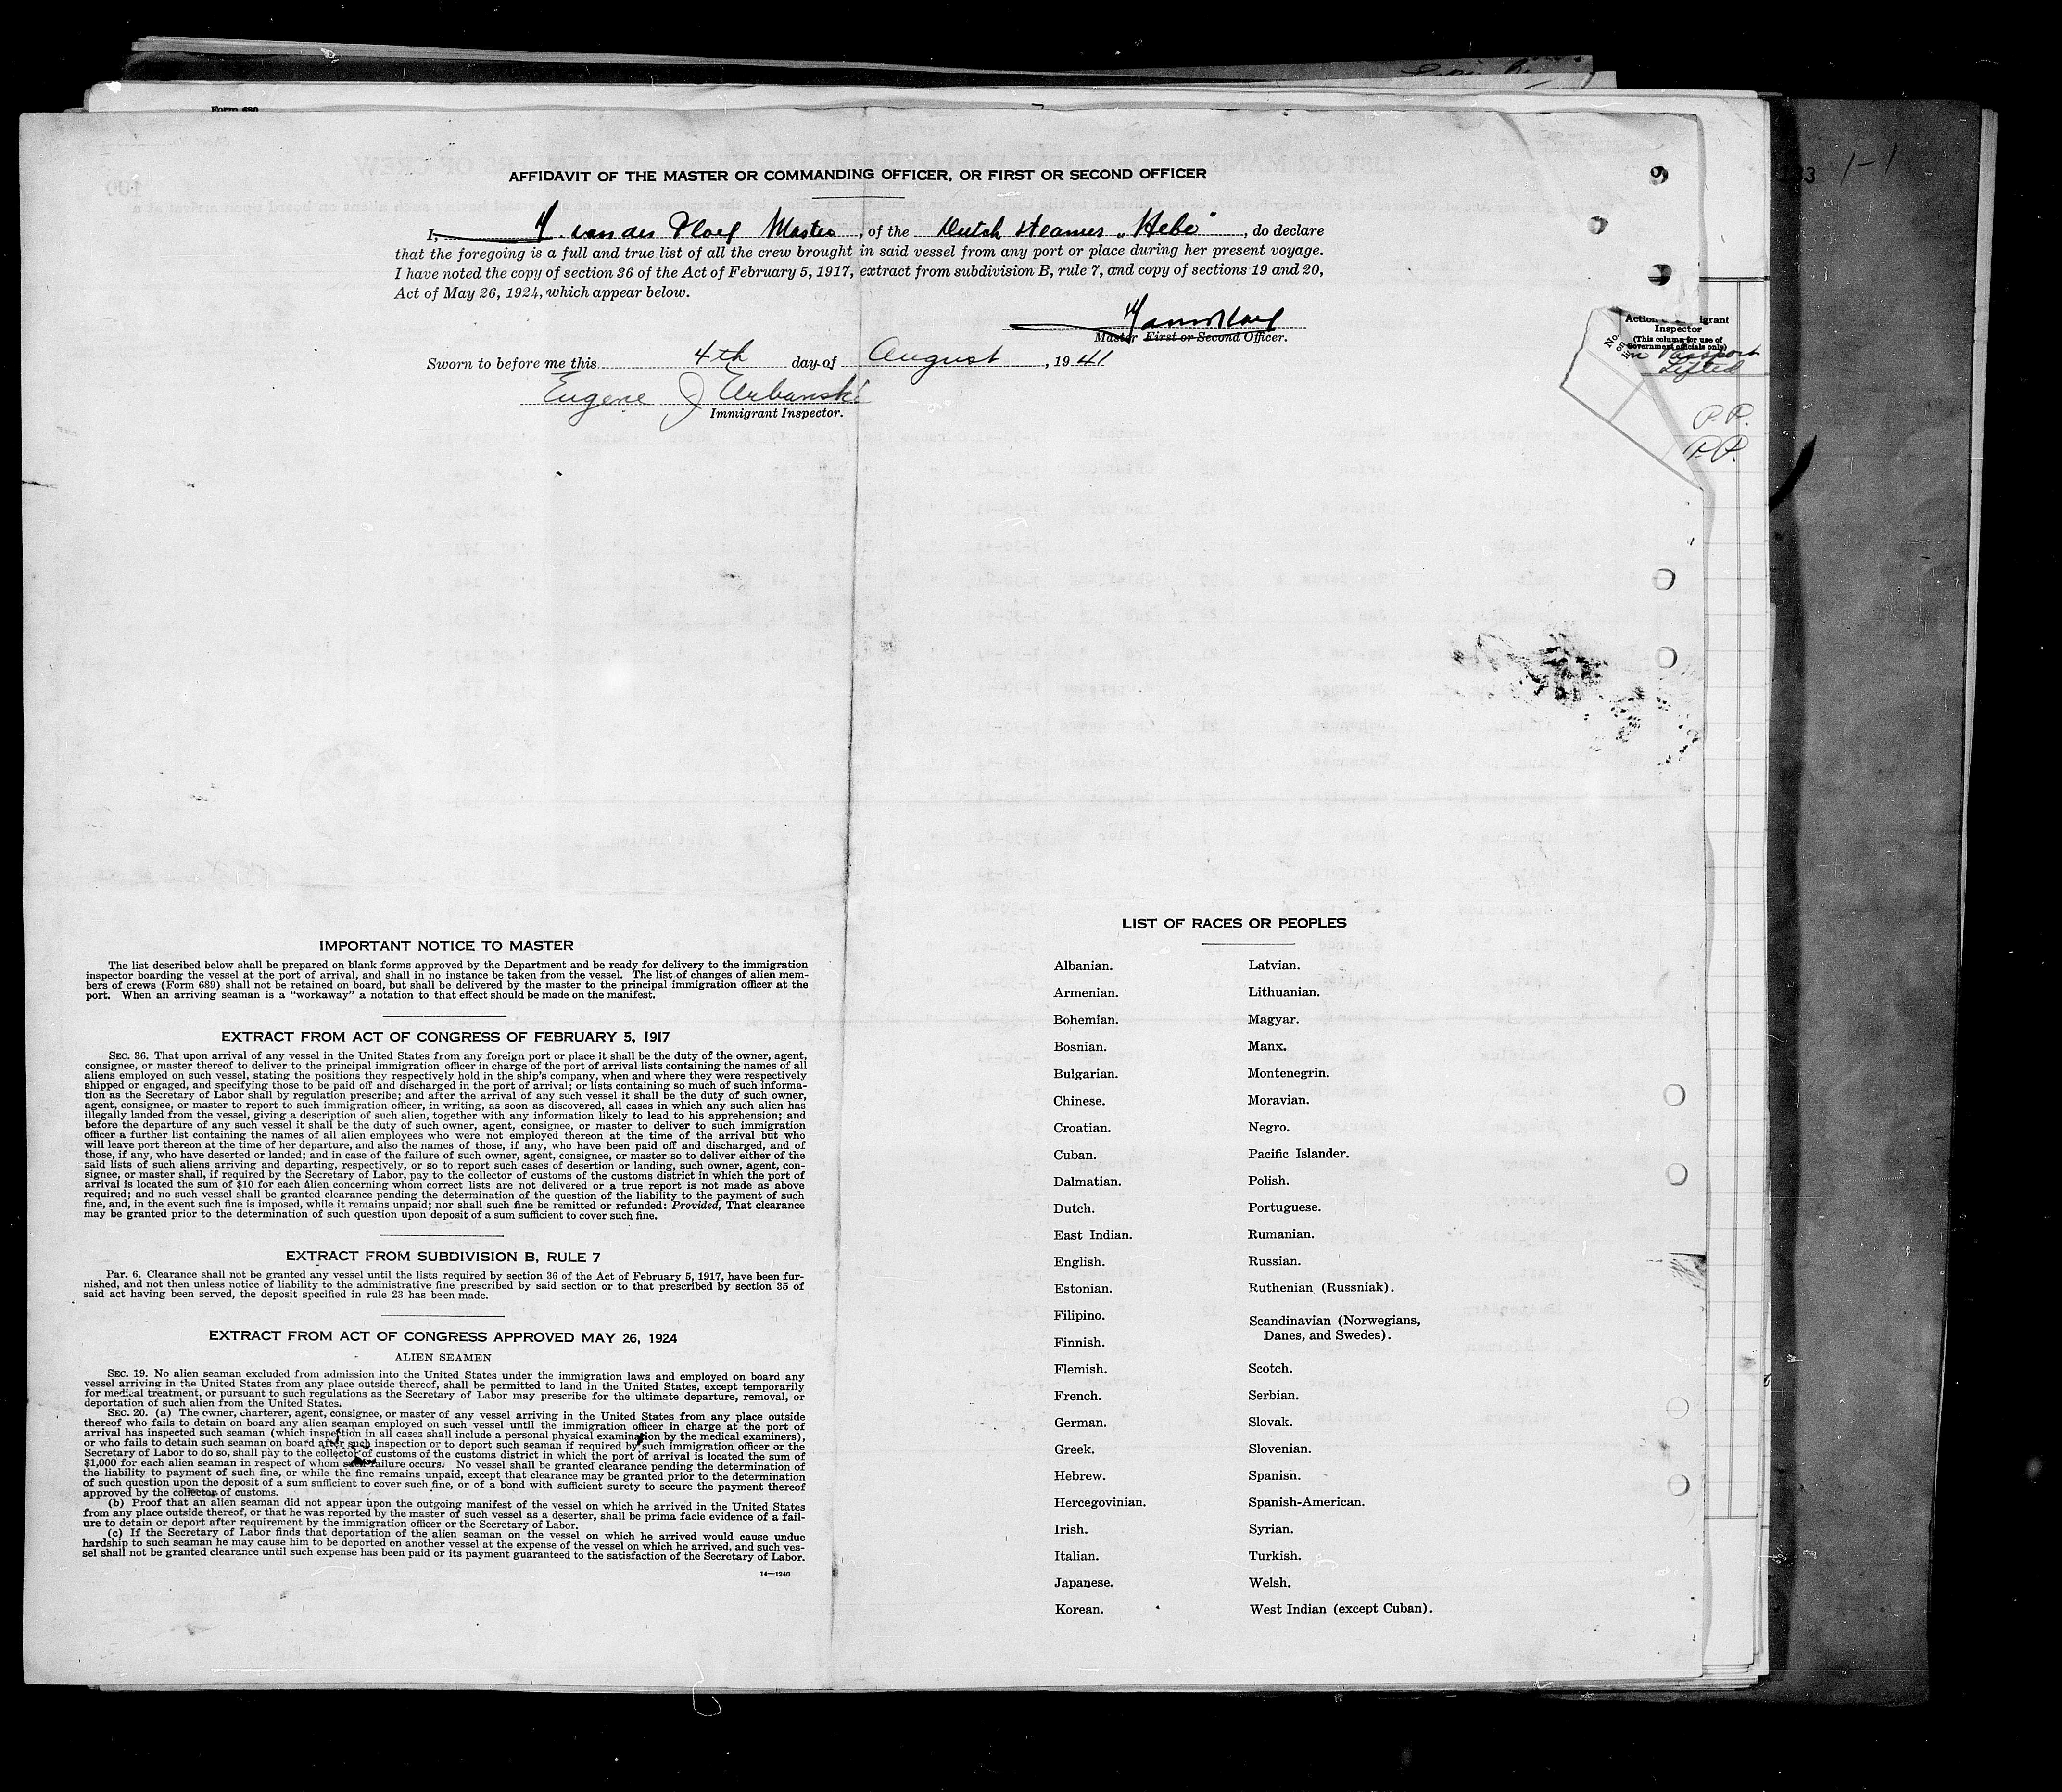 Form 689
AFFIDAVIT OF THE MASTER OR COMMANDING OFFICER, OR FIRST OR SECOND OFFICER
I, van der Ploeg Master, of the Dutch steamer "Hebe", do declare
that the foregoing is a full and true list of all the crew brought in said vessel from any port or place during her present voyage.
I have noted the copy of section 36 of the Act of February 5, 1917, extract from subdivision B, rule 7, and copy of sections 19 and 20,
Act of May 26, 1924, which appear below.
Master First or Second Officer.
Sworn to before me this 4th day of August, 1941
Eugene J Urbanski
Immigrant Inspector.
Inspector
(This column for use of
Government officials only)
Passport
Lifted
P.P.
P.P.
33 1-1
IMPORTANT NOTICE TO MASTER
The list described below shall be prepared on blank forms approved by the Department and be ready for delivery to the immigration
inspector boarding the vessel at the port of arrival, and shall in no instance be taken from the vessel. The list of changes of alien mem-
bers of crews (Form 689) shall not be retained on board, but shall be delivered by the master to the principal immigration officer at the
port. When an arriving seaman is a "workaway" a notation to that effect should be made on the manifest.
EXTRACT FROM ACT OF CONGRESS OF FEBRUARY 5, 1917
SEC. 36. That upon arrival of any vessel in the United States from any foreign port or place it shall be the duty of the owner, agent,
consignee, or master thereof to deliver to the principal immigration officer in charge of the port of arrival lists containing the names of all
aliens employed on such vessel, stating the positions they respectively hold in the ship's company, when and where they were respectively
shipped or engaged, and specifying those to be paid off and discharged in the port of arrival; or lists containing so much of such informa-
tion as the Secretary of Labor shall by regulation prescribe; and after the arrival of any such vessel it shall be the duty of such owner,
agent, consignee, or master to report to such immigration officer, in writing, as soon as discovered, all cases in which any such alien has
illegally landed from the vessel, giving a description of such alien, together with any information likely to lead to his apprehension; and
before the departure of any such vessel it shall be the duty of such owner, agent, consignee, or master to deliver to such immigration
officer a further list containing the names of all alien employees who were not employed thereon at the time of the arrival but who
will leave port thereon at the time of her departure, and also the names of those, if any, who have been paid off and discharged, and of
those, if any, who have deserted or landed; and in case of the failure of such owner, agent, consignee, or master so to deliver either of the
said lists of such aliens arriving and departing, respectively, or so to report such cases of desertion or landing, such owner, agent, con-
signee, or master shall, if required by the Secretary of Labor, pay to the collector of customs of the customs district in which the port of
arrival is located the sum of $10 for each alien concerning whom correct lists are not delivered or a true report is not made as above
required; and no such vessel shall be granted clearance pending the determination of the question of the liability to the payment of such
fine, and, in the event such fine is imposed, while it remains unpaid; nor shall such fine be remitted or refunded: Provided, That clearance
may be granted prior to the determination of such question upon deposit of a sum sufficient to cover such fine.
EXTRACT FROM SUBDIVISION B, RULE 7
Par. 6. Clearance shall not be granted any vessel until the lists required by section 36 of the Act of February 5, 1917, have been fur-
nished, and not then unless notice of liability to the administrative fine prescribed by said section or to that prescribed by section 35 of
said act having been served, the deposit specified in rule 23 has been made.
EXTRACT FROM ACT OF CONGRESS APPROVED MAY 26, 1924
ALIEN SEAMEN
SEC. 19. No alien seaman excluded from admission into the United States under the immigration laws and employed on board any
vessel arriving in the United States from any place outside thereof, shall be permitted to land in the United States, except temporarily
for medical treatment, or pursuant to such regulations as the Secretary of Labor may prescribe for the ultimate departure, removal, or
deportation of such alien from the United States.
SEC. 20. (a) The owner, charterer, agent, consignee, or master of any vessel arriving in the United States from any place outside
thereof who fails to detain on board any alien seaman employed on such vessel until the immigration officer in charge at the port of
arrival has inspected such seaman (which inspection in all cases shall include a personal physical examination by the medical examiners),
or who fails to detain such seaman on board after such inspection or to deport such seaman if required by such immigration officer or the
Secretary of Labor to do so, shall pay to the collector of customs of the customs district in which the port of arrival is located the sum of
$1,000 for each alien seaman in respect of whom such failure occurs. No vessel shall be granted clearance pending the determination of
the liability to payment of such fine, or while the fine remains unpaid, except that clearance may be granted prior to the determination
of such question upon the deposit of a sum sufficient to cover such fine, or of a bond with sufficient surety to secure the payment thereof
approved by the collector of customs.
(b) Proof that an alien seaman did not appear upon the outgoing manifest of the vessel on which he arrived in the United States
from any place outside thereof, or that he was reported by the master of such vessel as a deserter, shall be prima facie evidence of a fail-
ure to detain or deport after requirement by the immigration officer or the Secretary of Labor.
(c) If the Secretary of Labor finds that deportation of the alien seaman on the vessel on which he arrived would cause undue
hardship to such seaman he may cause him to be deported on another vessel at the expense of the vessel on which he arrived, and such ves-
sel shall not be granted clearance until such expense has been paid or its payment guaranteed to the satisfaction of the Secretary of Labor.
14—1240
LIST OF RACES OR PEOPLES
Albanian.
Armenian.
Bohemian.
Bosnian.
Bulgarian.
Chinese.
Croatian.
Cuban.
Dalmatian.
Dutch.
East Indian.
English.
Estonian.
Filipino.
Finnish.
Flemish.
French.
German.
Greek.
Hebrew.
Hercegovinian.
Irish.
Italian.
Japanese.
Korean.
Latvian.
Lithuanian.
Magyar.
Manx.
Montenegrin.
Moravian.
Negro.
Pacific Islander.
Polish.
Portuguese.
Rumanian.
Russian.
Ruthenian (Russniak).
Scandinavian (Norwegians,
Danes, and Swedes).
Scotch.
Serbian.
Slovak.
Slovenian.
Spanish.
Spanish-American.
Syrian.
Turkish.
Welsh.
West Indian (except Cuban).